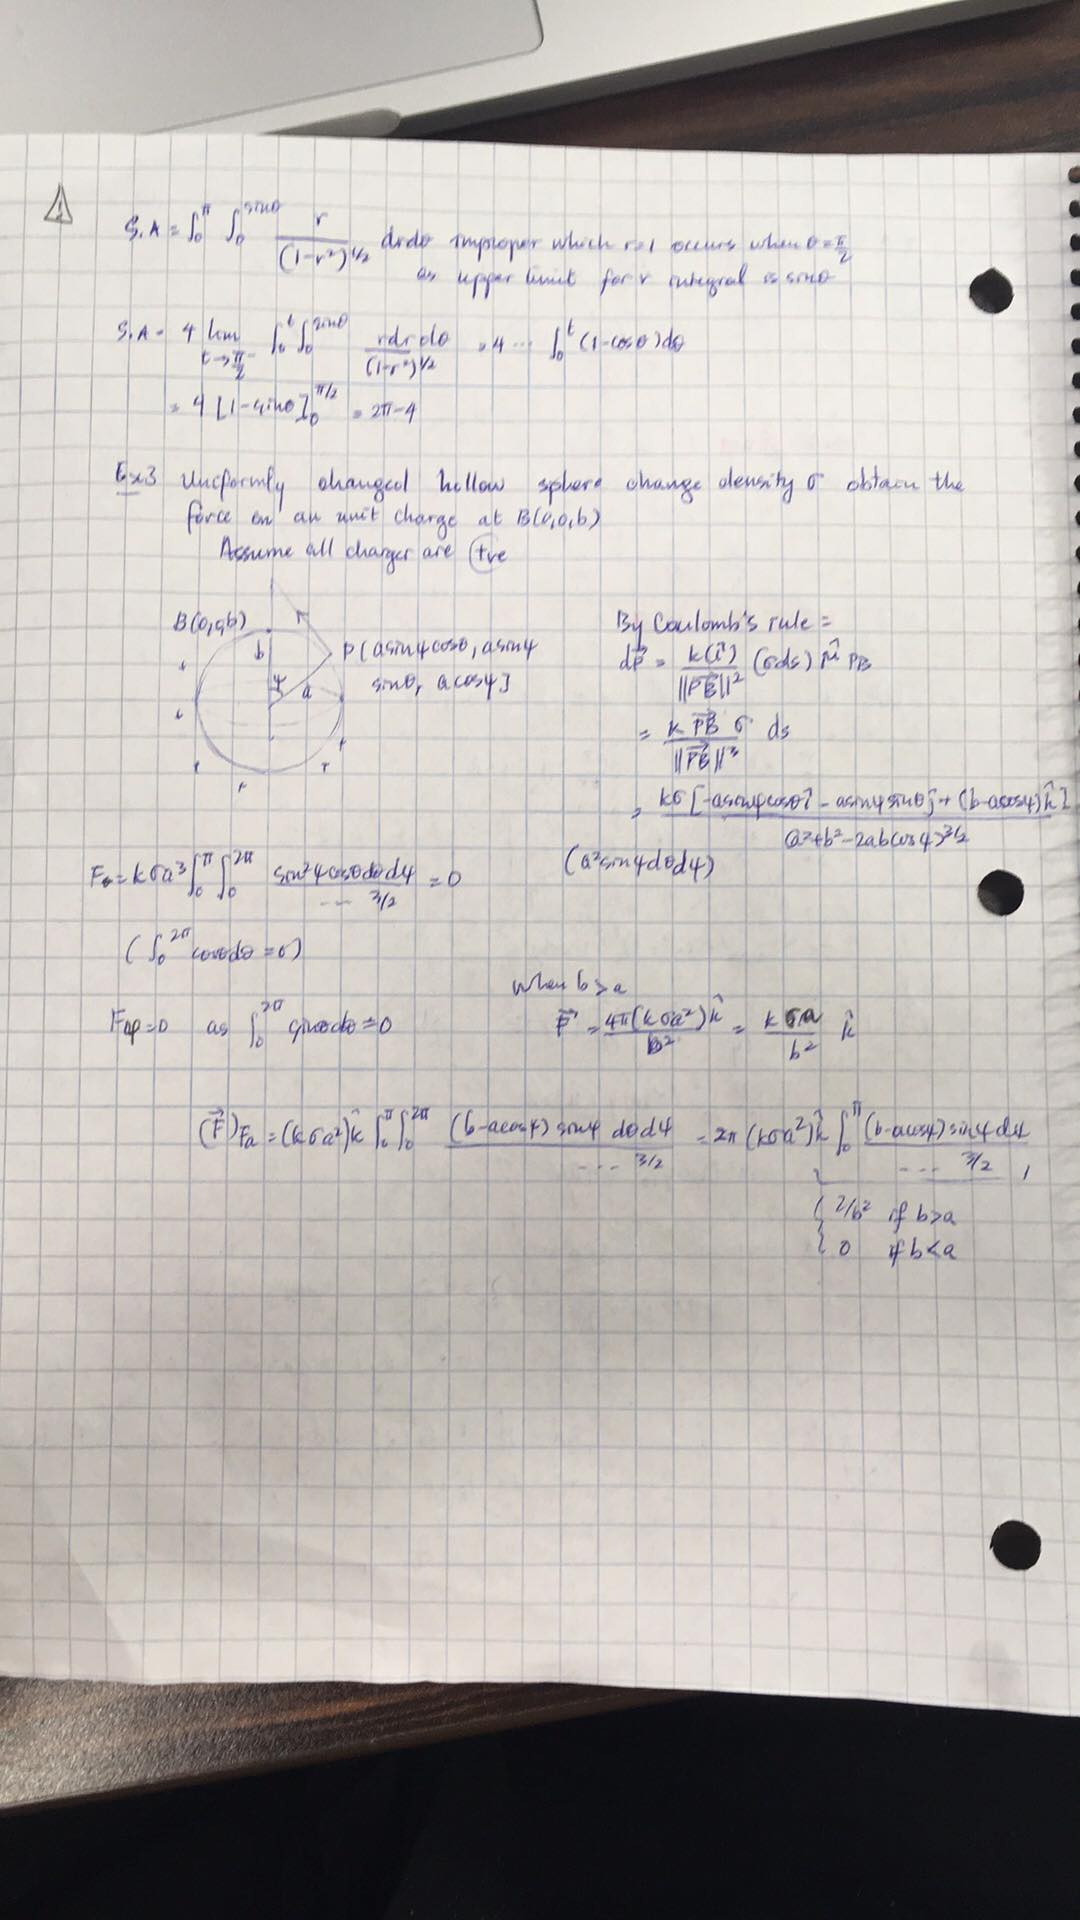 S.A = ∫₀^π ∫₀^sinθ r/(1-r²)^1/2 drdθ improper which r=1 occurs when θ=π/2
as upper limit for r integral is sinθ
S.A = 4 lim t→π/2⁻ ∫₀^t ∫₀^sinθ rdrdθ/(1-r²)^1/2 = 4 ... ∫₀^t (1-cosθ)dθ
= 4 [1-sinθ]₀^π/2 = 2π-4
Ex3 Uniformly charged hollow sphere charge density σ obtain the
force on an unit charge at B(0,0,b)
Assume all charges are +ve
B(0,0,b)
r
b
P(asinψcosθ, asinψ
sinθ, acosψ)
ψ
a
By Coulomb's rule =
dF = k(1)/||PB||² (σds) û PB
= k PB σ/||PB||³ ds
= kσ[-asinψcosθ î - asinψsinθ ĵ + (b-acosψ) k̂]/(a²+b²-2abcosψ)^3/2
(a²sinψdθdψ)
= kσa³ ∫₀^π ∫₀^2π sin²ψcosθdθdψ/... 3/2 = 0
(∫₀^2π cosθdθ = 0)
=0 as ∫₀^2π sinθdθ = 0
When b>a
F = 4π(kσa²) k̂/b² = kσa/b² k̂
(F) = (kσa²) k̂ ∫₀^π ∫₀^2π (b-acosψ) sinψ dθdψ/... 3/2 = 2π (kσa²) k̂ ∫₀^π (b-acosψ) sinψdψ/... 3/2
{ 2/b² if b>a
{ 0 if b<a